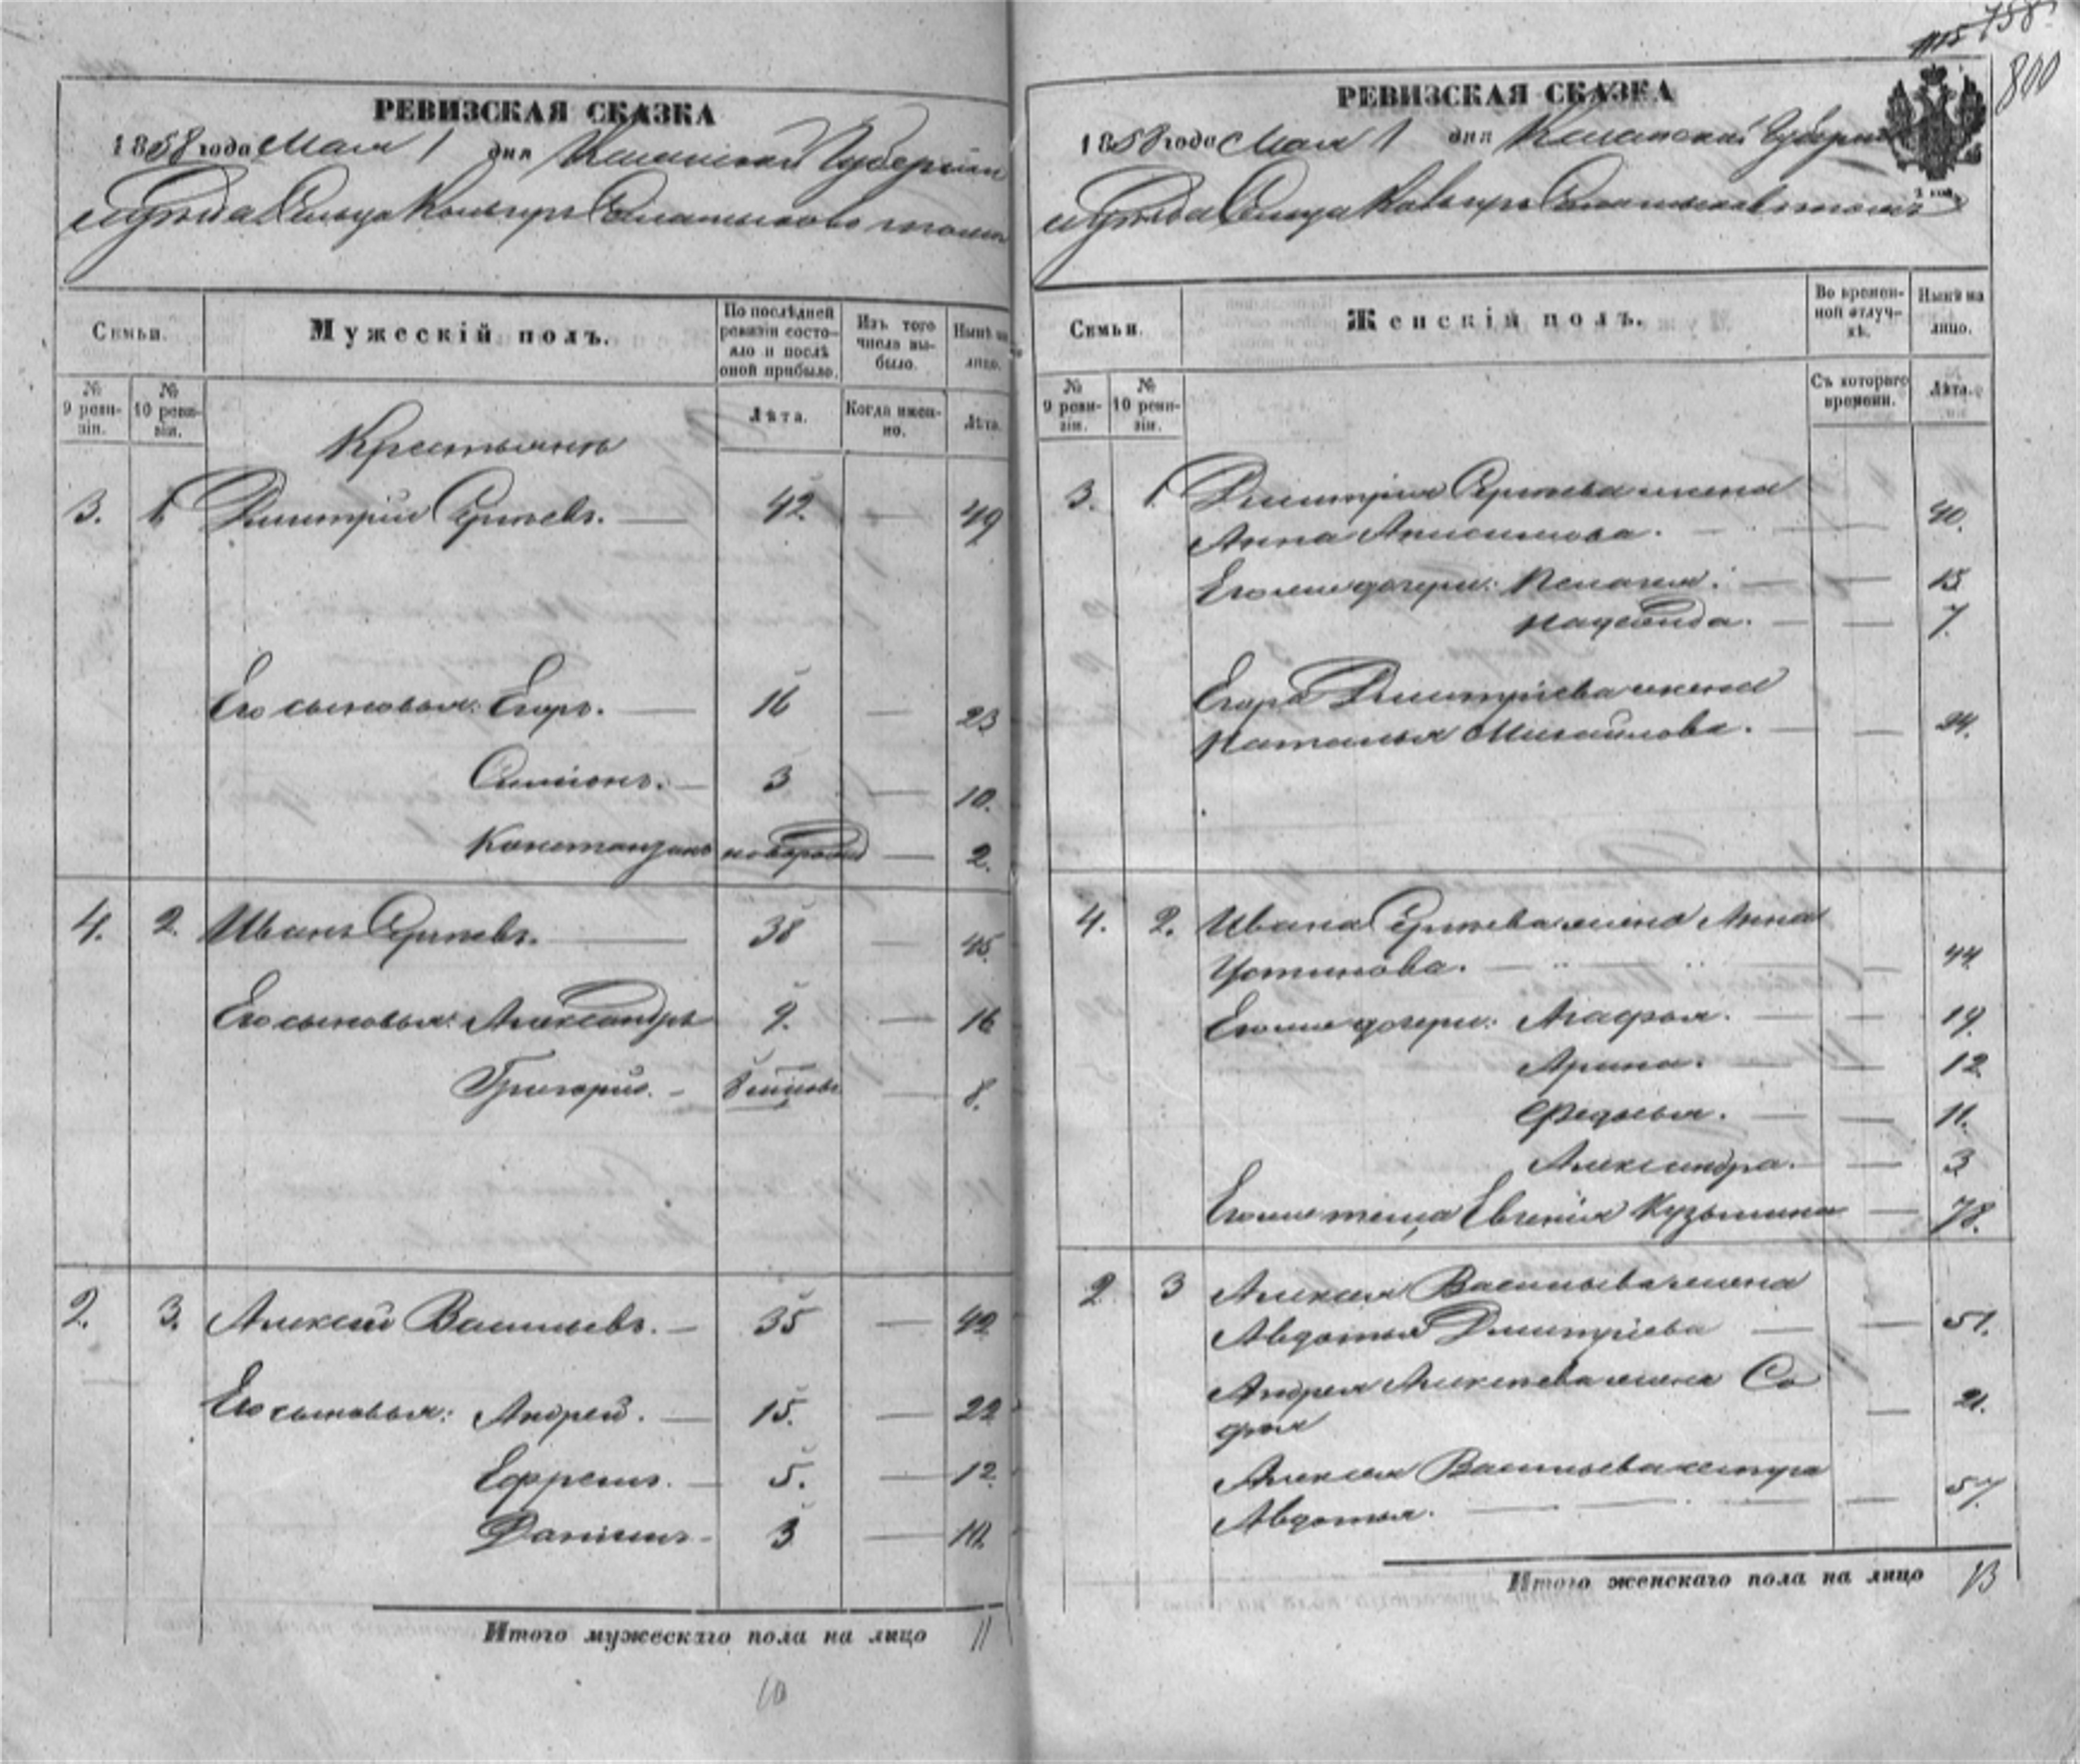 758
800
РЕВИЗСКАЯ СКАЗКА
1858 года Мая 1 дня Казанской Губернiи
Семьи.
Мужескiй полъ.
По послѣдней ревизiи состо-
яло и послѣ
оной прибыло.
Изъ того
числа вы-
было.
Нынѣ на
лицо.
№
9 реви-
зiи.
№
10 реви-
зiи.
Лѣта.
Когда имен-
но.
Лѣта.
Крестьянъ
3. 1. Дмитрiй Сергѣевъ. — 42 — 49
Его сыновья: Егоръ. — 16 — 23
Симiонъ. — 3 — 10.
Констанзинъ новорожд — 2.
4. 2. Иванъ Сергѣевъ. — 38 — 45.
Его сыновья: Александръ 9. — 16
Григорiй. — — 8.
2. 3. Алексей Васильевъ. — 35 — 42
Его сыновья: Андрей. — 15. — 22
Ефремъ. — 5. — 12
Данiилъ — 3 — 10.
Итого мужескаго пола на лицо 11
10
РЕВИЗСКАЯ СКАЗКА
1858 года Мая 1 дня Казанской Губернiи
Семьи.
Женскiй полъ.
Во времен-
ной отлуч-
кѣ.
Нынѣ на
лицо.
№
9 реви-
зiи.
№
10 реви-
зiи.
Съ котораго
времени.
Лѣта.
3. 1. Дмитрiя Сергѣева жена
Анна Анисимова. — — 40.
Его же дочери: Пелагея. — — 15
Надежда. — — 7.
Егора Дмитрiева жена
Наталья Михайлова. — — 24.
4. 2. Ивана Сергѣева жена Анна
Устинова. — — 44
Его же дочери: Агафья. — — 19.
Арина. — — 12
Федосья. — — 11.
Александра. — — 3
Его же теща Евгенiя Кузьмина — 78.
2 3 Алексея Васильева жена
Авдотья Дмитрiева — — 51.
Андрея Алексѣева жена Со
фья — 21.
Алексея Васильева сестра
Авдотья. — — 57
Итого женскаго пола на лицо 13